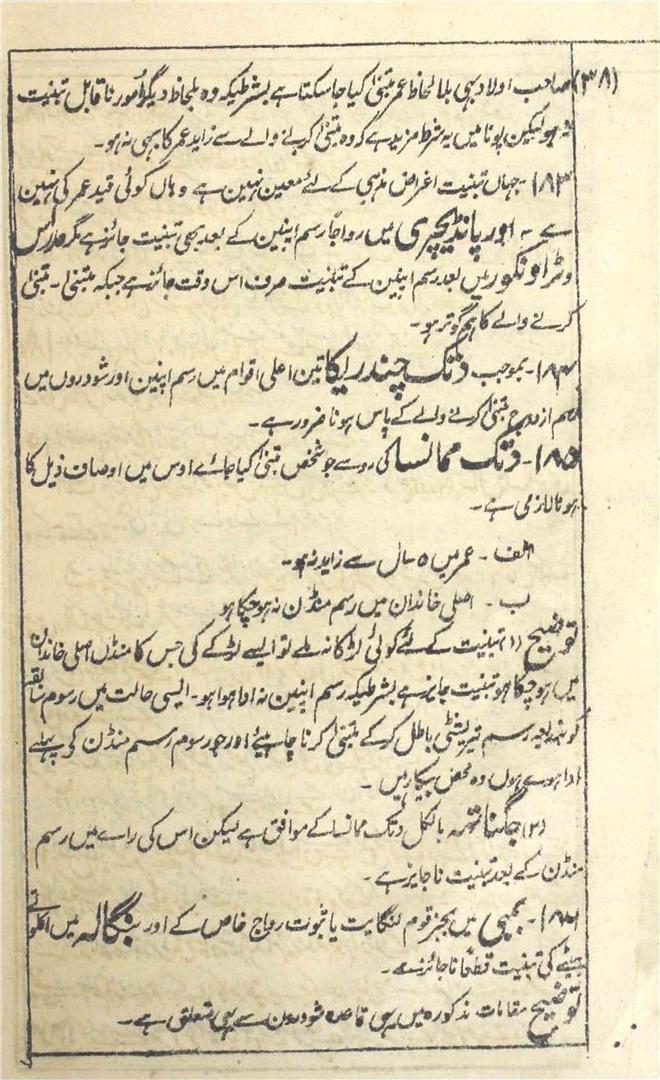 (۳۸) صاحب اولاد بہی بلا لحاظ عمر متبنیٰ کیا جا سکتا ہے بشرطیکہ وہ بلحاظ دیگر اُمور ناقابل تبنیت
نہ ہو لیکن پونا میں یہ شرط مزید ہے کہ وہ متبنیٰ کرنے والے سے زاید عمر کا بہی نہ ہو۔
۱۸۳۔ جہاں تبنیت اغراض مذہبی کے لئے معین نہین ہے وہاں کوئی قید عمر کی نہین
ہے ۔ اور پانڈیچری میں رواجاً رسم اپنین کے بعد بھی تبنیت جائز ہے مگر مدراس
وٹراونکور میں بعد رسم اپنین کے تبنیت صرف اس وقت جائز ہے جبکہ متبنیٰ ۔ متبنیٰ
کرنے والے کا ہم گوتر ہو۔
۱۸۴۔ بموجب دتک چندریکا تین اعلی اقوام میں رسم اپنین اور شودروں میں
رسم ازدواج متبنیٰ کرنے والے کے پاس ہونا ضرور ہے۔
۱۸۵۔ دتک ممانسا کی روسے جو شخص متبنیٰ کیا جائے اوس میں اوصاف ذیل کا
ہونا لازمی ہے۔
الف ۔ عمر میں ۵ سال سے زاید نہ ہو۔
ب ۔ اصلی خاندان میں رسم منڈن نہ ہو چکا ہو
توضیح (۱) تبنیت کے لئے کوئی لڑکا نہ ملے تو ایسے لڑکے کی جس کا منڈن اصلی خاندان
میں ہو چکا ہو تبنیت جایز ہے بشرطیکہ رسم اپنین نہ ادا ہوا ہو۔ ایسی حالت میں رسوم سابقہ
کو بذریعہ رسم پتریشٹی باطل کر کے متبنیٰ کرنا چاہیئے اور جو رسوم رسم منڈن کو پہلے
ادا ہوے ہوں وہ محض بیکار ہیں ۔
(۲) جگنناتھہ بالکل دتک ممانسا کے موافق ہے لیکن اس کی راے میں رسم
منڈن کے بعد تبنیت ناجایز ہے۔
۱۸۶۔ بمبئی میں بجز قوم لنگایت یا ثبوت رواج خاص کے اور بنگالہ میں اکلوتے
بیٹے کی تبنیت قطعاً ناجائز ہے۔
توضیح مقامات مذکورہ میں یہی قاعدہ شودرون سے بہی متعلق ہے۔